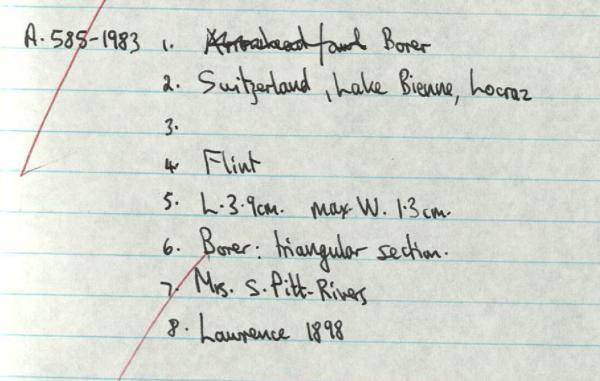 A.585-1983 1. Borer
2. Switzerland, Lake Bienne, Locraz
3.
4. Flint
5. L.3.9cm. max W. 1.3cm.
6. Borer: triangular section.
7. Mrs. S. Pitt-Rivers
8. Lawrence 1898